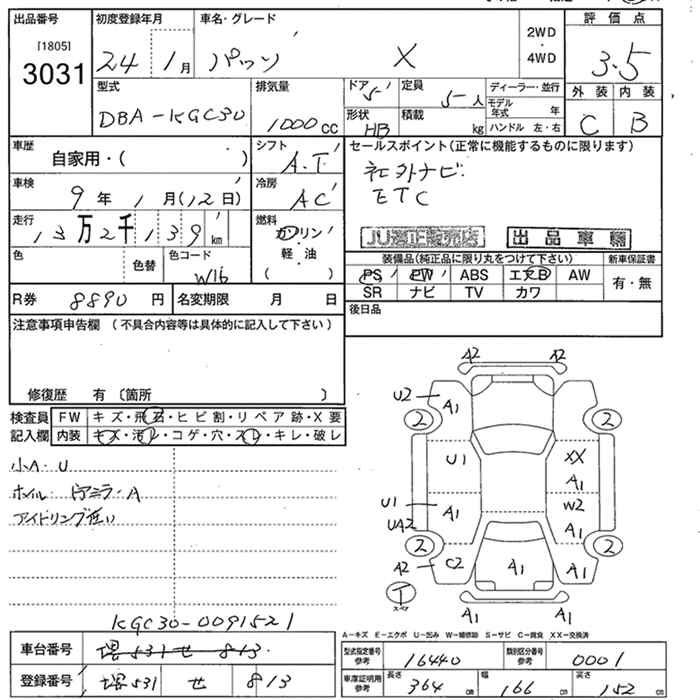 出品番号 初度登録年月 車名・グレード 評価点
[1805] 2WD
3031 24 1月 パッソ X ・ 3.5
4WD
型式 排気量 ドア 5 定員 5人 ディーラー・並行 外装 内装
DBA-KGC30 1000cc 形状 HB 積載 kg モデル年式 年 C B
ハンドル 左・右
車歴 自家用・( ) シフト A.T セールスポイント(正常に機能するものに限ります)
車検 9年 1月(12日) 冷房 AC 社外ナビ
ETC
走行 13万2千139km 燃料 ガソリン
軽・油
( ) JU適正販売店 出品車輌
色 色替 色コード W16 装備品(純正品に限り丸をつけて下さい) 新車保証書
PS PW ABS エアB AW 有・無
SR ナビ TV カワ
R券 8890円 名変期限 月 日 後日品
注意事項申告欄 (不具合内容等は具体的に記入して下さい)
修復歴 有〔箇所 〕
検査員 FW キズ・飛石・ヒビ割・リペア跡・X要
記入欄 内装 キズ・汚レ・コゲ・穴・スレ・キレ・破レ
小A・U
ホイル・ドアミラ・A
アイドリング低い
A2 A2
U2 A1
2 2
U1 XX
A1
U1 A1 W2
UA2 A1
2 2
A2 C2 A1 A1
T
スペア
A1 A1
KGC30-0091521
A-キズ E-エクボ U-凹み W-補修跡 S-サビ C-腐食 XX-交換済
車台番号 堺531 せ 813
型式指定番号 参考 16440 類別区分番号 参考 0001
登録番号 堺531 せ 813
車庫証明用 参考 長さ 364cm 幅 166cm 高さ 152cm